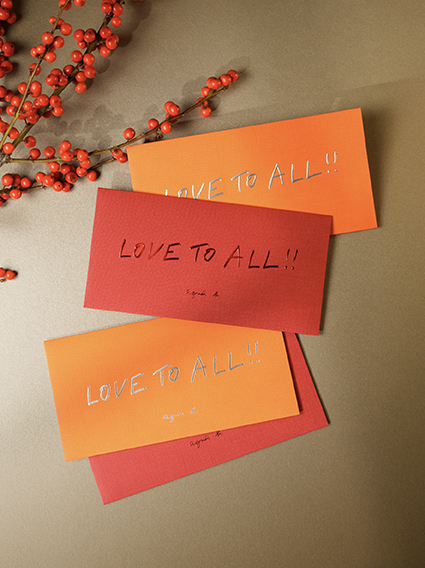 LOVE TO ALL!!
LOVE TO ALL!!
agnès b.
LOVE TO ALL!!
agnès b.
agnès b.